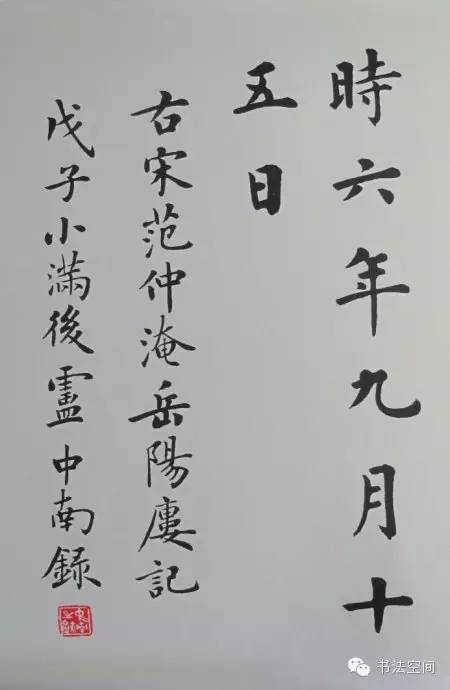 時六年九月十
五日
右宋范仲淹岳陽廔記
戊子小滿後盧中南録
书法空间